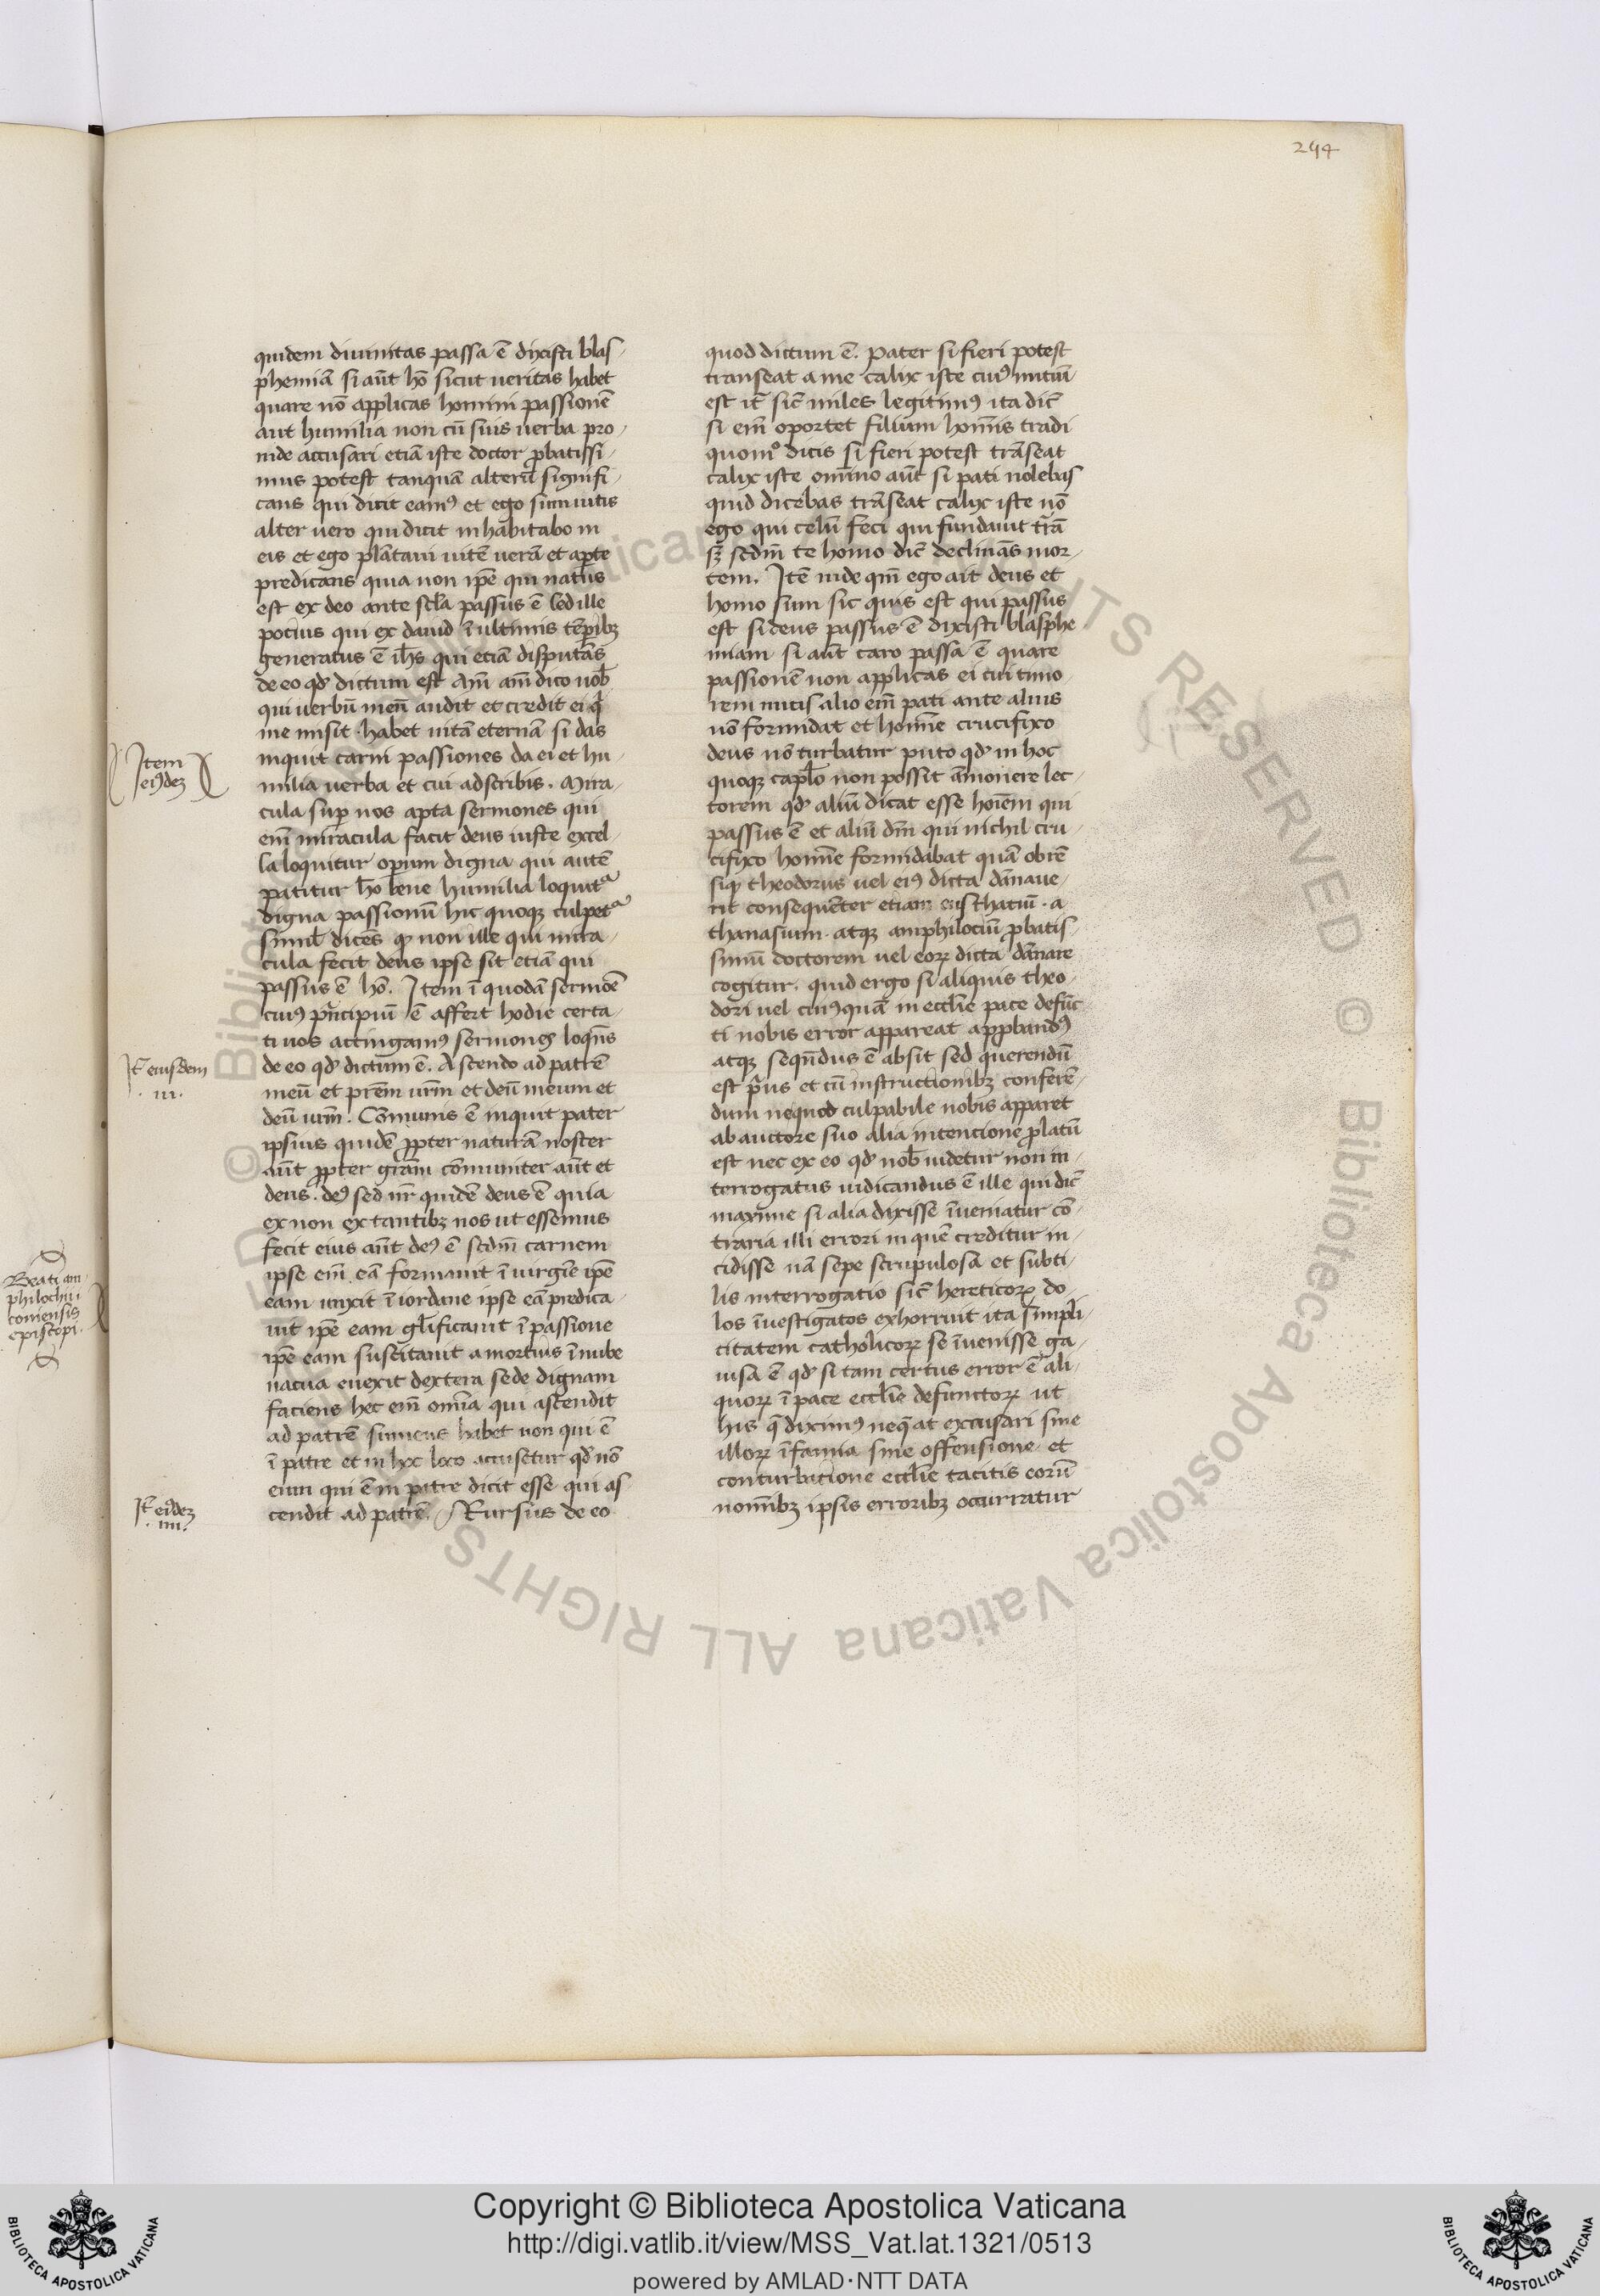 244
quidem diuinitas passa ē dixisti blas-
phemiā si aūt hō sicut ueritas habet
quare nō applicas homini passionē
aut humilia non cū suis uerba pro-
inde accusari etiā iste doctor ꝓbatissi-
mus potest tanquā alterū signifi-
cans qui dicit eamꝰ et ego sum uitis
alter uero qui dicit inhabitabo in
eis et ego plātaui uitē uerā et aꝑte
predicans quia non ip̄e qui natus
est ex deo ante scl̄a passus ē sed ille
pocius qui ex dauid ī ultimis tēpibꝫ
generatus ē ih̄s qui etiā disputās
de eo qd̓ dictum est Am̄ am̄ dico uob̄
qui uerbū meū audit et credit ei q̇
me misit habet uitā eternā si das
inquit carni passiones da ei et hu-
milia uerba et cui adscribis. Mira-
cula suꝑ nos apta sermones qui
em̄ miracula facit deus iuste excel-
la loquitur operum digna qui autē
patitur hō bene humilia loquitᵃ
digna passionū hic quoqꝫ culpetᵃ
simil̄ dicēs qꝫ non ille qui mira-
cula fecit deus ipse sit etiā qui
passus ē hō. Item ī quodā sermōe
cuiꝰ prīcipiū ē affert hodie certa-
ti uos attingamꝰ sermones loqn̄s
de eo qd̓ dictum ē. Ascendo ad patrē
meū et prēm ur̄m et deū meum et
deū ur̄m. Cōmunis ē inquit pater
ipsius quidē ꝓpter naturā noster
aūt ꝓpter grām cōmuniter aūt et
deus. deꝰ sed nr̄ quidē deus ē quia
ex non extantibꝫ nos ut essemus
fecit eius aūt deꝰ ē scdm̄ carnem
ipse em̄ eā formauit ī uirgīe ip̄e
eam unxit ī iordane ipse eā predica-
uit ip̄e eam gl̄ificauit ī passione
ip̄e eam suscitauit a mortuis ī nube
uacua euexit dextera sede dignam
faciens hec em̄ om̄ia qui ascendit
ad patrē sumens habet non qui ē
ī patre et in hoc loco accusetur qd̓ nō
eum qui ē in patre dicit esse qui as-
cendit ad patrē. Rursus de eo
Item
eiꝰdeꝫ
It̄ eiusdem
.iii.
It̄ eiꝰdeꝫ
.iiii.
Beati am-
philochii
coniensis
episcopi.
quod dictum ē. Pater si fieri potest
transeat a me calix iste cuiꝰ initiū
est it̄ sic̄ miles legitimꝰ ita dic̄
si em̄ oportet filium hom̄is tradi
quomͦ dicis si fieri potest trāseat
calix iste om̄ino aūt si pati nolebas
quid dicebas trāseat calix iste nō
ego qui celū feci qui fundauit tr̄ā
sꝫ scdm̄ te homo dic̄ declināss mor-
tem. Itē inde qm̄ ego ait deus et
homo sum sic quis est qui passus
est si deus passus ē dixisti blasphe
miam si aūt caro passa ē quare
passionē non applicas ei cui timo-
rem nitis alio em̄ pati ante alius
nō formidat et homīe crucifixo
deus nō turbatur puto qd̓ in hoc
quoqꝫ cap̄lo non possit āmonere lec-
torem qd̓ aliū dicat esse hoīem qui
passus ē et aliū dm̄ qui nichil cru-
cifixo homīe formidabat quā obrē
siqꝫ theodorus uel eiꝰ dicta dānaue-
rit consequēter etiam eusthatiū. a
thanasium. atqꝫ amphilociū ꝓbatis-
simū doctorem uel eoꝝ dicta dānare
cogitur. quid ergo si aliquis theo-
dori uel cuiꝰquā in eccl̄ie pace defūc
ti nobis error appareat approbandꝰ
atqꝫ sequēdus ē absit sed querendū
est prīus et cū instructionibꝫ conferē-
dum ne quod culpabile nobis apparet
ab auctore suo alia intencione ꝓlatū
est nec ex eo qd̓ nob̄ uidetur non in-
terrogatus iudicandus ē ille qui dic̄
maxime si alia dixisse īueniatur cō-
traria illi errori in quē creditur in-
cidisse nā sepe scrupulosa et subti-
lis interrogatio sic̄ hereticoꝝ do-
los īuestigatos exhorruit ita simpli-
citatem catholicoꝝ se īuenisse ga-
uisa ē qd̓ si tam certus error ē ali-
quoꝝ ī pace eccl̄ie defunctoꝝ ut
his q̄ diximꝰ neq̄at excusari sine
illoꝝ īfamia sine offensione et
conturbatione eccl̄ie tacitis eorū
nomībꝫ ipsis erroribꝫ occurratur
Copyright © Biblioteca Apostolica Vaticana
http://digi.vatlib.it/view/MSS_Vat.lat.1321/0513
powered by AMLAD·NTT DATA